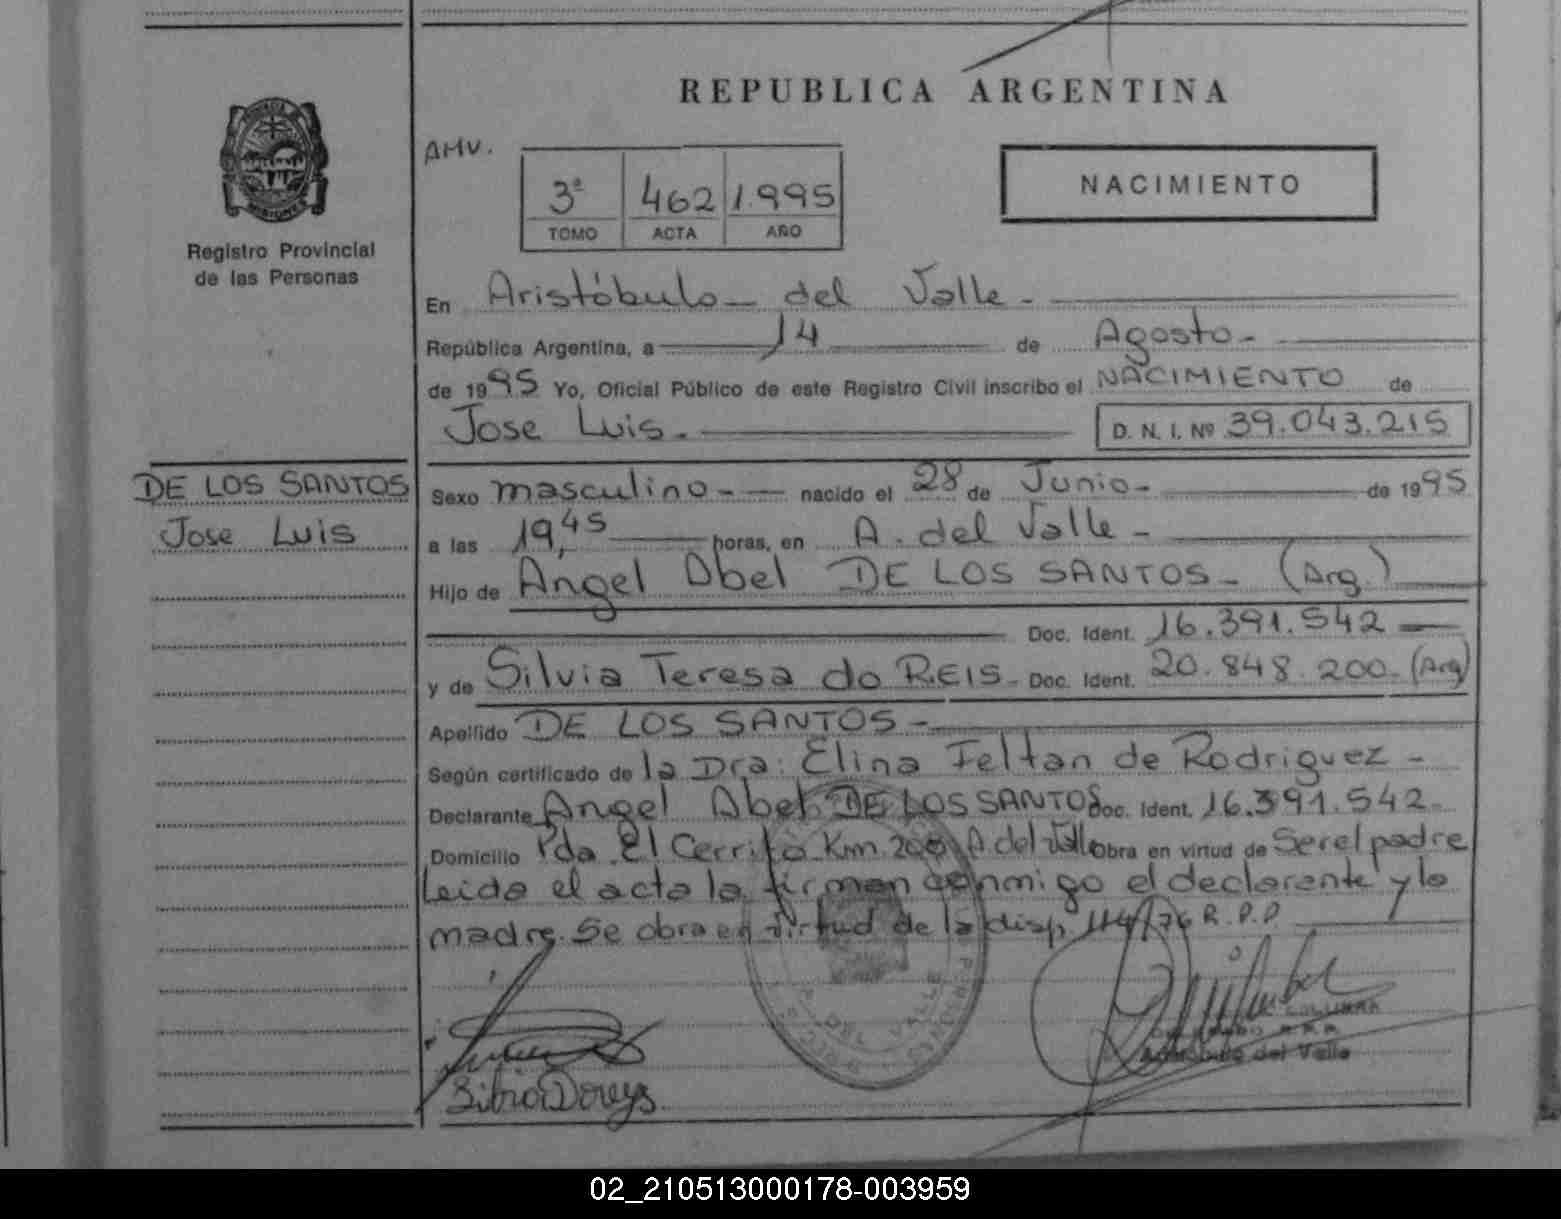 REPUBLICA ARGENTINA
PROVINCIA DE
MISIONES
Registro Provincial
de las Personas
AMV.
3ª 462 1.995
TOMO ACTA AÑO
NACIMIENTO
En Aristóbulo del Valle -
República Argentina, a 14 de Agosto -
de 1995 Yo, Oficial Público de este Registro Civil inscribo el NACIMIENTO de
Jose Luis. D. N. I. Nº 39.043.215
DE LOS SANTOS
Jose Luis
Sexo masculino - nacido el 28 de Junio - de 1995
a las 19,45 horas, en A. del Valle -
Hijo de Angel Abel DE LOS SANTOS - (Arg.)
Doc. Ident. 16.391.542
y de Silvia Teresa do REIS - Doc. Ident. 20.848.200 - (Arg)
Apellido DE LOS SANTOS -
Según certificado de la Dra: Elina Feltan de Rodriguez -
Declarante Angel Abel DE LOS SANTOS Doc. Ident. 16.391.542 -
Domicilio Pda. El Cerrito Km. 200 A. del Valle obra en virtud de Ser el padre
Leida el acta la firman conmigo el declarante y la
madre. Se obra en virtud de la disp. 114/76 R.P.P.
A. DEL VALLE
Aristóbulo del Valle
02_210513000178-003959